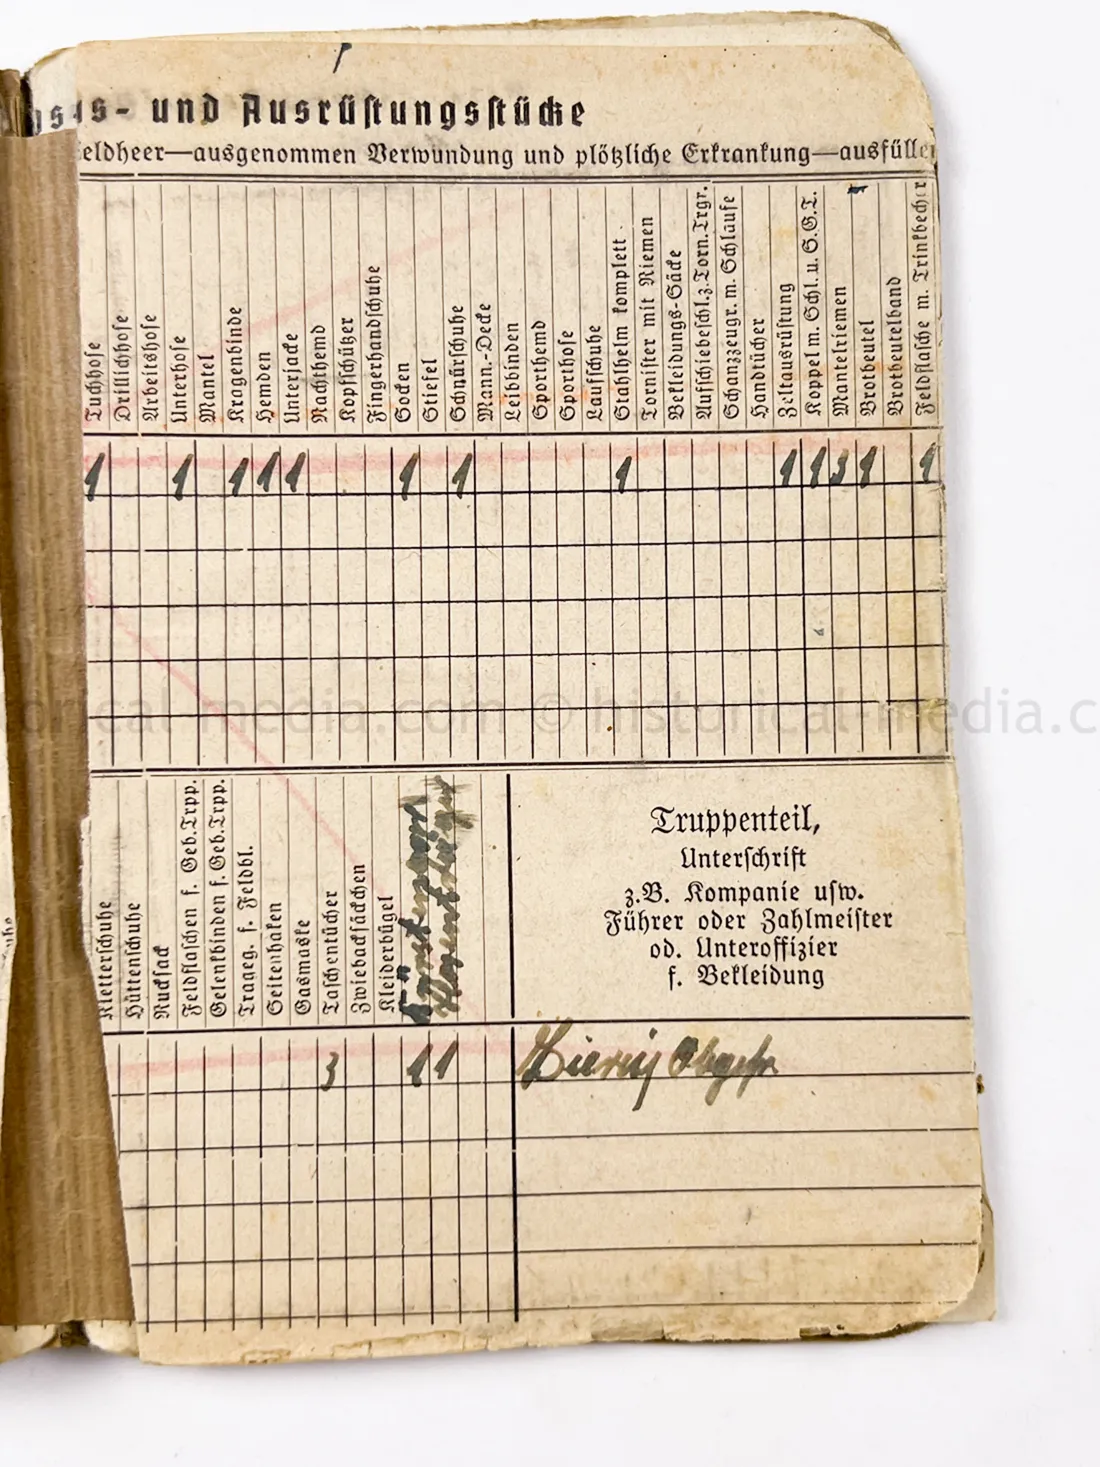 gs- und Ausrüstungsstücke
eldheer—ausgenommen Verwundung und plötzliche Erkrankung—ausfülle
Tuchhose
Drillichhose
Arbeitshose
Unterhose
Mantel
Kragenbinde
Hemden
Unterjacke
Nachthemd
Kopfschützer
Fingerhandschuhe
Socken
Stiefel
Schnürschuhe
Mann.-Decke
Leibbinden
Sporthemd
Sporthose
Laufschuhe
Stahlhelm komplett
Tornister mit Riemen
Bekleidungs-Säcke
Aufschiebeschl.z.Torn.Trgr.
Schanzzeugr. m. Schlaufe
Handtücher
Zeltausrüstung
Koppel m. Schl. u. S.G.T.
Mantelriemen
Brotbeutel
Brotbeutelband
Feldflasche m. Trinkbecher
1 1 1 1 1 1 1 1 1 1 3 1 1
historical-media.com © historical-media.c
Kletterschuhe
Hüttenschuhe
Rucksack
Feldflaschen f. Geb.Trpp.
Gelenkbinden f. Geb.Trpp.
Trageg. f. Feldbl.
Seitenhaken
Gasmaske
Taschentücher
Zwiebacksäckchen
Kleiderbügel
Hosenträger
Truppenteil,
Unterschrift
z.B. Kompanie usw.
Führer oder Zahlmeister
od. Unteroffizier
f. Bekleidung
3 1 1 Obgefr